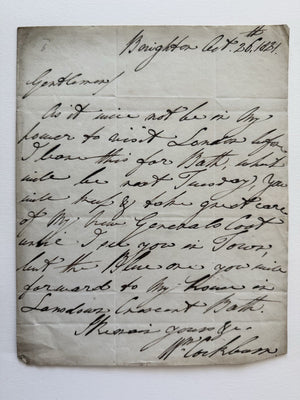 Brighton Oct. 26th 1831.
Gentlemen
As it will not be in My
power to visit London before
I leave this for Bath, which
will be next Tuesday, You
will keep & take great care
of My new Generals Coat
until I see you in Town,
but the Blue one you will
forward to My house in
Lansdown Crescent Bath.
I remain yours &c.
Wm. Cockburn